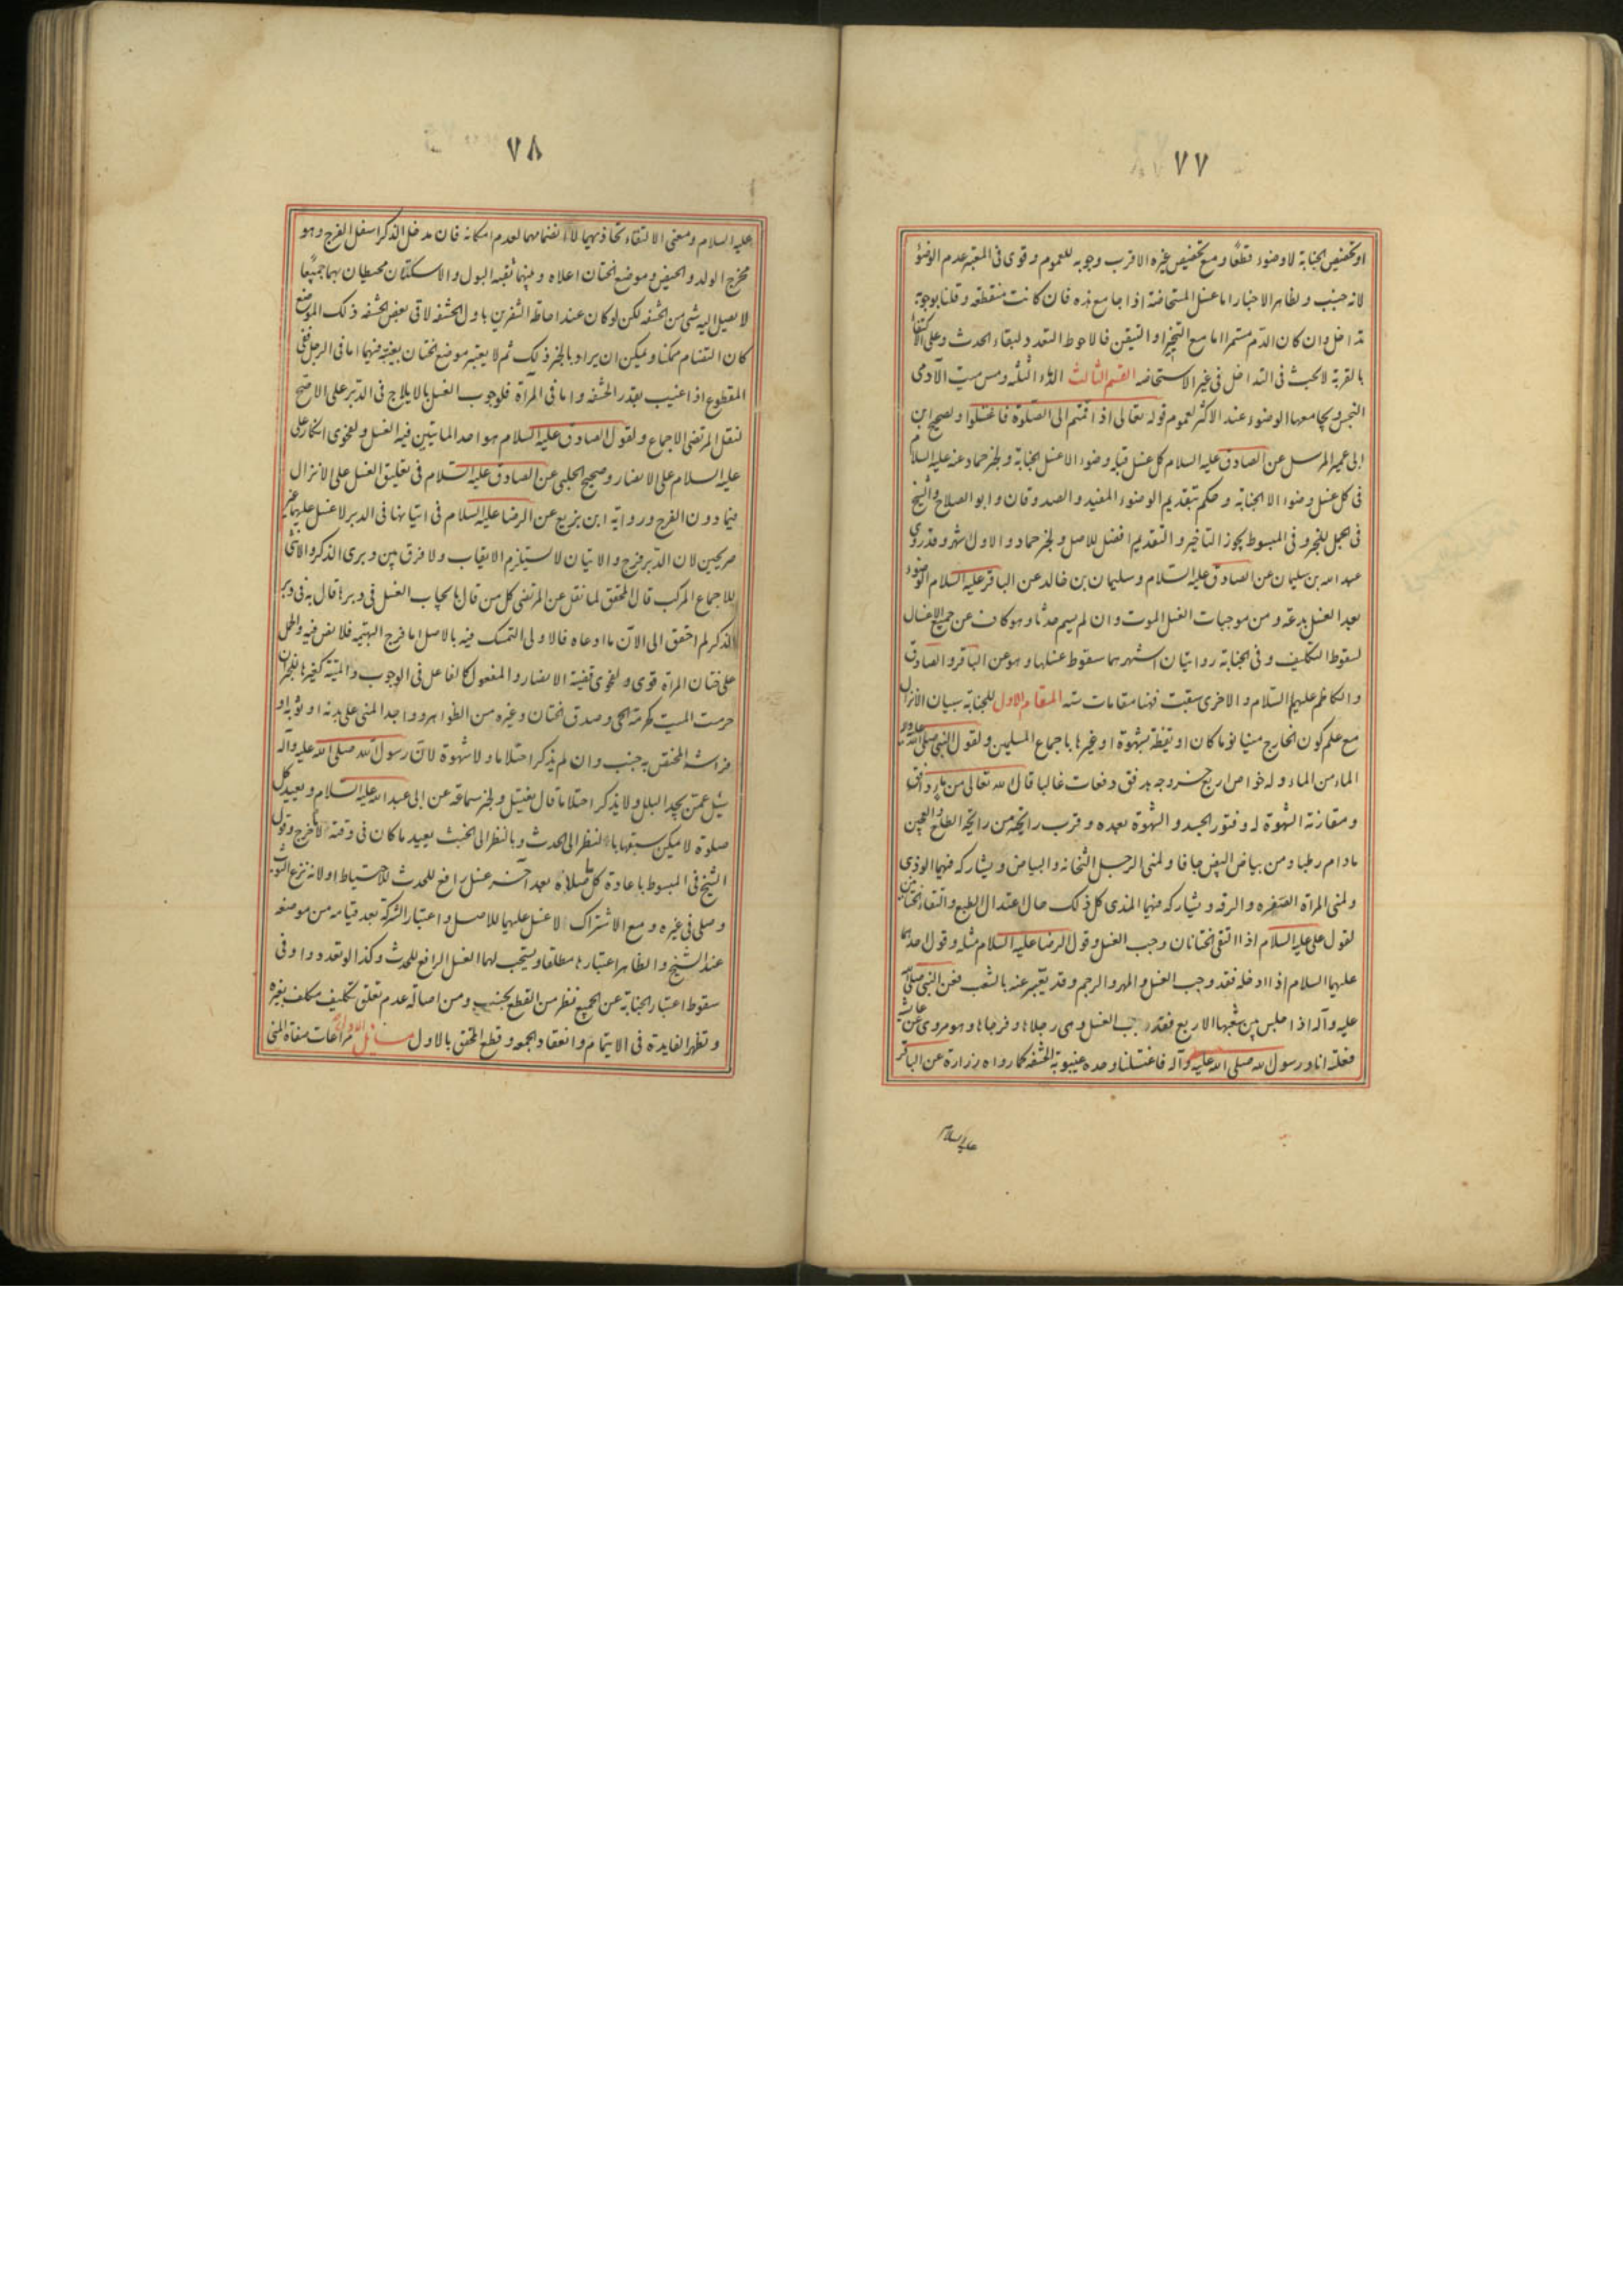 ٧٧
او تخصيص الجنابة لا وضوء قطعًا و مع تخصيص غيره الاقرب وجوبه للعموم و قوى فى المعتبر عدم الوضوء
لانه جنب و لظاهر الاخبار اما غسل المستحاضة اذا جامع هذه فان كانت منقطعة و قلنا بوجوبه
تداخل و ان كان الدم مستمرا اما مع التخير او التيقن فالاحوط التعدد لبقاء الحدث و على الاكتفا
بالقربة لا بحث فى التداخل فى غير الاستحاضه القسم الثالث الدماء الثلثه و مس ميت الآدمى
النجس و يجامعها الوضوء عند الاكثر لعموم قوله تعالى اذا قمتم الى الصلوة فاغسلوا و لصحيح ابن
ابى عمير المرسل عن الصادق عليه السلام كل غسل قبله وضوء الا غسل الجنابة و لخبر حماد عنه عليه السلام
فى كل غسل وضوء الا الجنابة و حكم بتقديم الوضوء المفيد و الصدوقان و ابو الصلاح و الشيخ
فى الجمل للخبر و فى المبسوط يجوز التاخير و التقديم افضل للاصل و لخبر حماد و الاول اشهر و قد روى
عبد الله بن سليمان عن الصادق عليه السلام و سليمان بن خالد عن الباقر عليه السلام الوضوء
بعد الغسل بدعة و من موجبات الغسل الموت و ان لم يسم حدثا و هو كاف عن جميع الاغسال
لسقوط التكليف و فى الجنابة روايتان اشهرهما سقوط غسلها و هو عن الباقر و الصادق
و الكاظم عليهم السلام و الاخرى سبقت فهنا مقامات سته المقام الاول للجنابة سببان الانزال
مع علم كون الخارج منيا نوما كان او يقظة بشهوة او غيرها باجماع المسلمين و لقول النبى صلى الله عليه و آله
الماء من الماء و له خواص اربع خروجه بدفق دفعات غالبا قال الله تعالى من ماء دافق
و مقارنة الشهوة له و فتور الجسد و الشهوة بعده و قرب رائحته من رائحة الطلع و العجين
مادام رطبا و من بياض البيض جافا و لمنى الرجل الثخانه و البياض و يشاركه فيهما الوذى
و لمنى المرأة الصفره و الرقه و يشاركه فيهما المذى كل ذلك حال اعتدال الطبع و التقاء الختانين
لقول على عليه السلام اذا التقى الختانان وجب الغسل و قول الرضا عليه السلام مثله و قول احدهما
عليهما السلام اذا ادخله فقد وجب الغسل و المهر و الرجم و قد يعبر عنه بالشعب فعن النبى صلى الله
عليه و آله اذا جلس بين شعبها الاربع فقد وجب الغسل و هى رجلاها و فرجاها و هو مروى عن عائشة
فعلته انا و رسول الله صلى الله عليه و آله فاغتسلنا و حده غيبوبة الحشفه كما رواه زرارة عن الباقر
عليه السلام
٧٨
عليه السلام و معنى الالتقاء تحاذيهما لا انضمامهما لعدم امكانه فان مدخل الذكر اسفل الفرج و هو
مخرج الولد و الحيض و موضع الختان اعلاه و بينهما ثقبه البول و الاسكتان محيطان بهما جميعًا
لا يصل اليه شى من الحشفه لكن لو كان عند احاطة الشفرين باول الحشفه لاقى بعض الحشفه ذلك الموضع
كان التضام ممكنا و يمكن ان يراد بالخبر ذلك ثم لا يعتبر موضع الختان بعينه فيهما اما فى الرجل ففى
المقطوع اذا غيب بقدر الحشفه و اما فى المرأة فلوجوب الغسل بالايلاج فى الدبر على الاصح
لنقل المرتضى الاجماع و لقول الصادق عليه السلام هو احد الماتيين فيه الغسل و لفحوى انكار على
عليه السلام على الانصار و صحيح الحلبى عن الصادق عليه السلام فى تعليق الغسل على الانزال
فيما دون الفرج و رواية ابن بزيع عن الرضا عليه السلام فى اتيانها فى الدبر لا غسل عليهما غير
صريحين لان الدبر فرج و الاتيان لا يستلزم الايقاب و لا فرق بين دبرى الذكر و الانثى
للاجماع المركب قال المحقق لما نقل عن المرتضى كل من قال بايجاب الغسل فى دبرها قال به فى دبر
الذكر لم اتحقق الى الآن ما ادعاه فالاولى التمسك فيه بالاصل اما فرج البهيمه فلا نص فيه و الحمل
على ختان المرأة قوى و لفحوى قضية الانصار و المفعول كالفاعل فى الوجوب و الميتة كغيرها لخبر ان
حرمت الميت كحرمة الحى و صدق الختان و غيره من الظواهر و واجد المنى على بدنه او ثوبه او
فراشه المختص به جنب و ان لم يذكر احتلاما و لا شهوة لان رسول الله صلى الله عليه و آله
سئل عمن يجد البلل و لا يذكر احتلاما قال يغتسل و لخبر سماعة عن ابى عبد الله عليه السلام و يعيد كل
صلوة لا يمكن سبقها بالنظر الى الحدث و بالنظر الى الخبث يعيد ما كان فى وقته لا ما خرج و قول
الشيخ فى المبسوط باعادة كل صلاة بعد آخر غسل رافع للحدث للاحتياط او لانه نزع الثوب
و صلى فى غيره و مع الاشتراك لا غسل عليهما للاصل و اعتبار الشركة بعد قيامه من موضعه
عند الشيخ و الظاهر اعتبارها مطلقا و يستحب لهما الغسل الرافع للحدث و كذا لو تعددوا و فى
سقوط اعتبار الجنابة عن الجميع نظر من القطع بجنب و من اصالة عدم تعلق تكليف مكلف بغيره
و تظهر الفايدة فى الايتمام و انعقاد الجمعه و قطع المحقق بالاول مسائل الاولى مراعات صفاة المنى